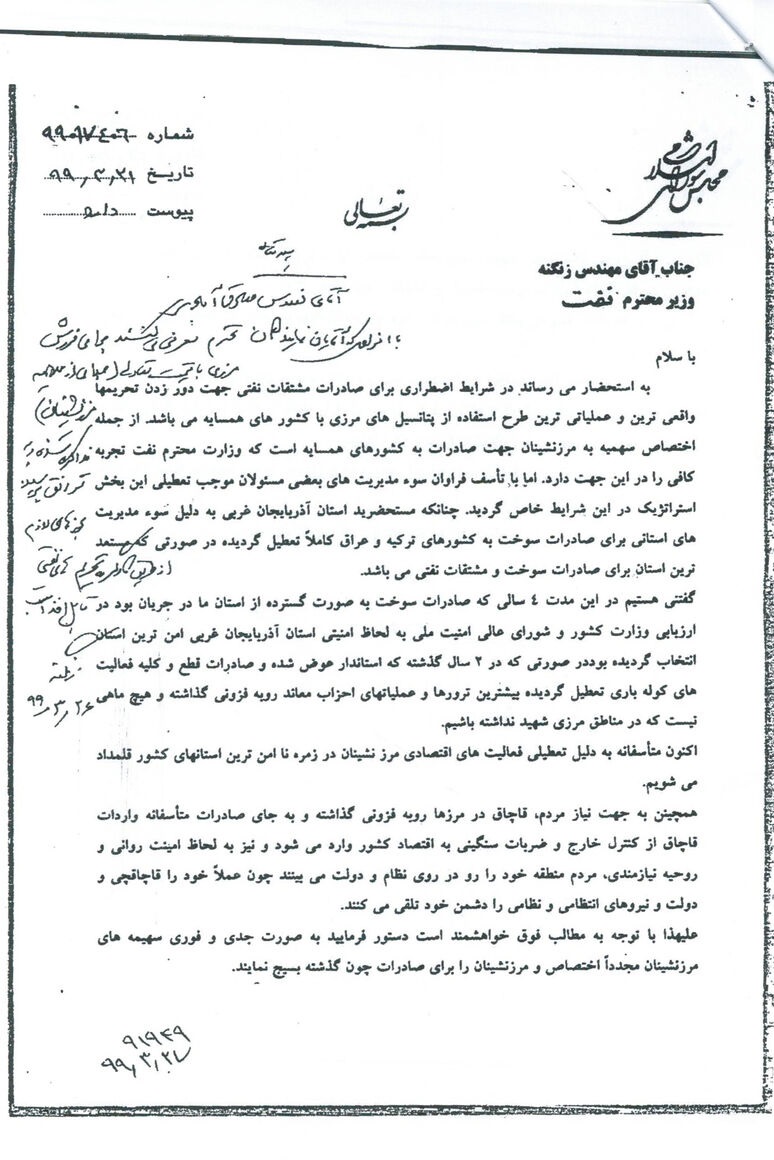 مجلس شورای اسلامی
شماره ۹۹۰۹۷۴۰۶
تاریخ ۹۹٫۳٫۲۱
پیوست دارد
بسمه تعالی
جناب آقای مهندس زنگنه
وزیر محترم نفت
آقای مهندس
نمایندگان محترم معرفی می کنند برای فروش
مرزی با قیمت
با سلام
به استحضار می رساند در شرایط اضطراری برای صادرات مشتقات نفتی جهت دور زدن تحریمها
واقعی ترین و عملیاتی ترین طرح استفاده از پتانسیل های مرزی با کشور های همسایه می باشد. از جمله
اختصاص سهمیه به مرزنشینان جهت صادرات به کشورهای همسایه است که وزارت محترم نفت تجربه
کافی را در این جهت دارد. اما با تأسف فراوان سوء مدیریت های بعضی مسئولان موجب تعطیلی این بخش
استراتژیک در این شرایط خاص گردید. چنانکه مستحضرید استان آذربایجان غربی به دلیل سوء مدیریت
های استانی برای صادرات سوخت به کشورهای ترکیه و عراق کاملاً تعطیل گردیده در صورتی که مستعد
ترین استان برای صادرات سوخت و مشتقات نفتی می باشد.
گفتنی هستیم در این مدت ٤ سالی که صادرات سوخت به صورت گسترده از استان ما در جریان بود در
ارزیابی وزارت کشور و شورای عالی امنیت ملی به لحاظ امنیتی استان آذربایجان غربی امن ترین استان
انتخاب گردیده بوددر صورتی که در ۲ سال گذشته که استاندار عوض شده و صادرات قطع و کلیه فعالیت
های کوله باری تعطیل گردیده بیشترین ترورها و عملیاتهای احزاب معاند روبه فزونی گذاشته و هیچ ماهی
نیست که در مناطق مرزی شهید نداشته باشیم.
اکنون متأسفانه به دلیل تعطیلی فعالیت های اقتصادی مرز نشینان در زمره نا امن ترین استانهای کشور قلمداد
می شویم.
همچینن به جهت نیاز مردم، قاچاق در مرزها روبه فزونی گذاشته و به جای صادرات متأسفانه واردات
قاچاق از کنترل خارج و ضربات سنگینی به اقتصاد کشور وارد می شود و نیز به لحاظ امینت روانی و
روحیه نیازمندی، مردم منطقه خود را رو در روی نظام و دولت می بینند چون عملاً خود را قاچاقچی و
دولت و نیروهای انتظامی و نظامی را دشمن خود تلقی می کنند.
علیهذا با توجه به مطالب فوق خواهشمند است دستور فرمایید به صورت جدی و فوری سهیمه های
مرزنشینان مجدداً اختصاص و مرزنشینان را برای صادرات چون گذشته بسیج نمایند.
زنگنه
۹۹٫۳٫۲۶
۹۱۹۴۹
۹۹٫۳٫۲۸